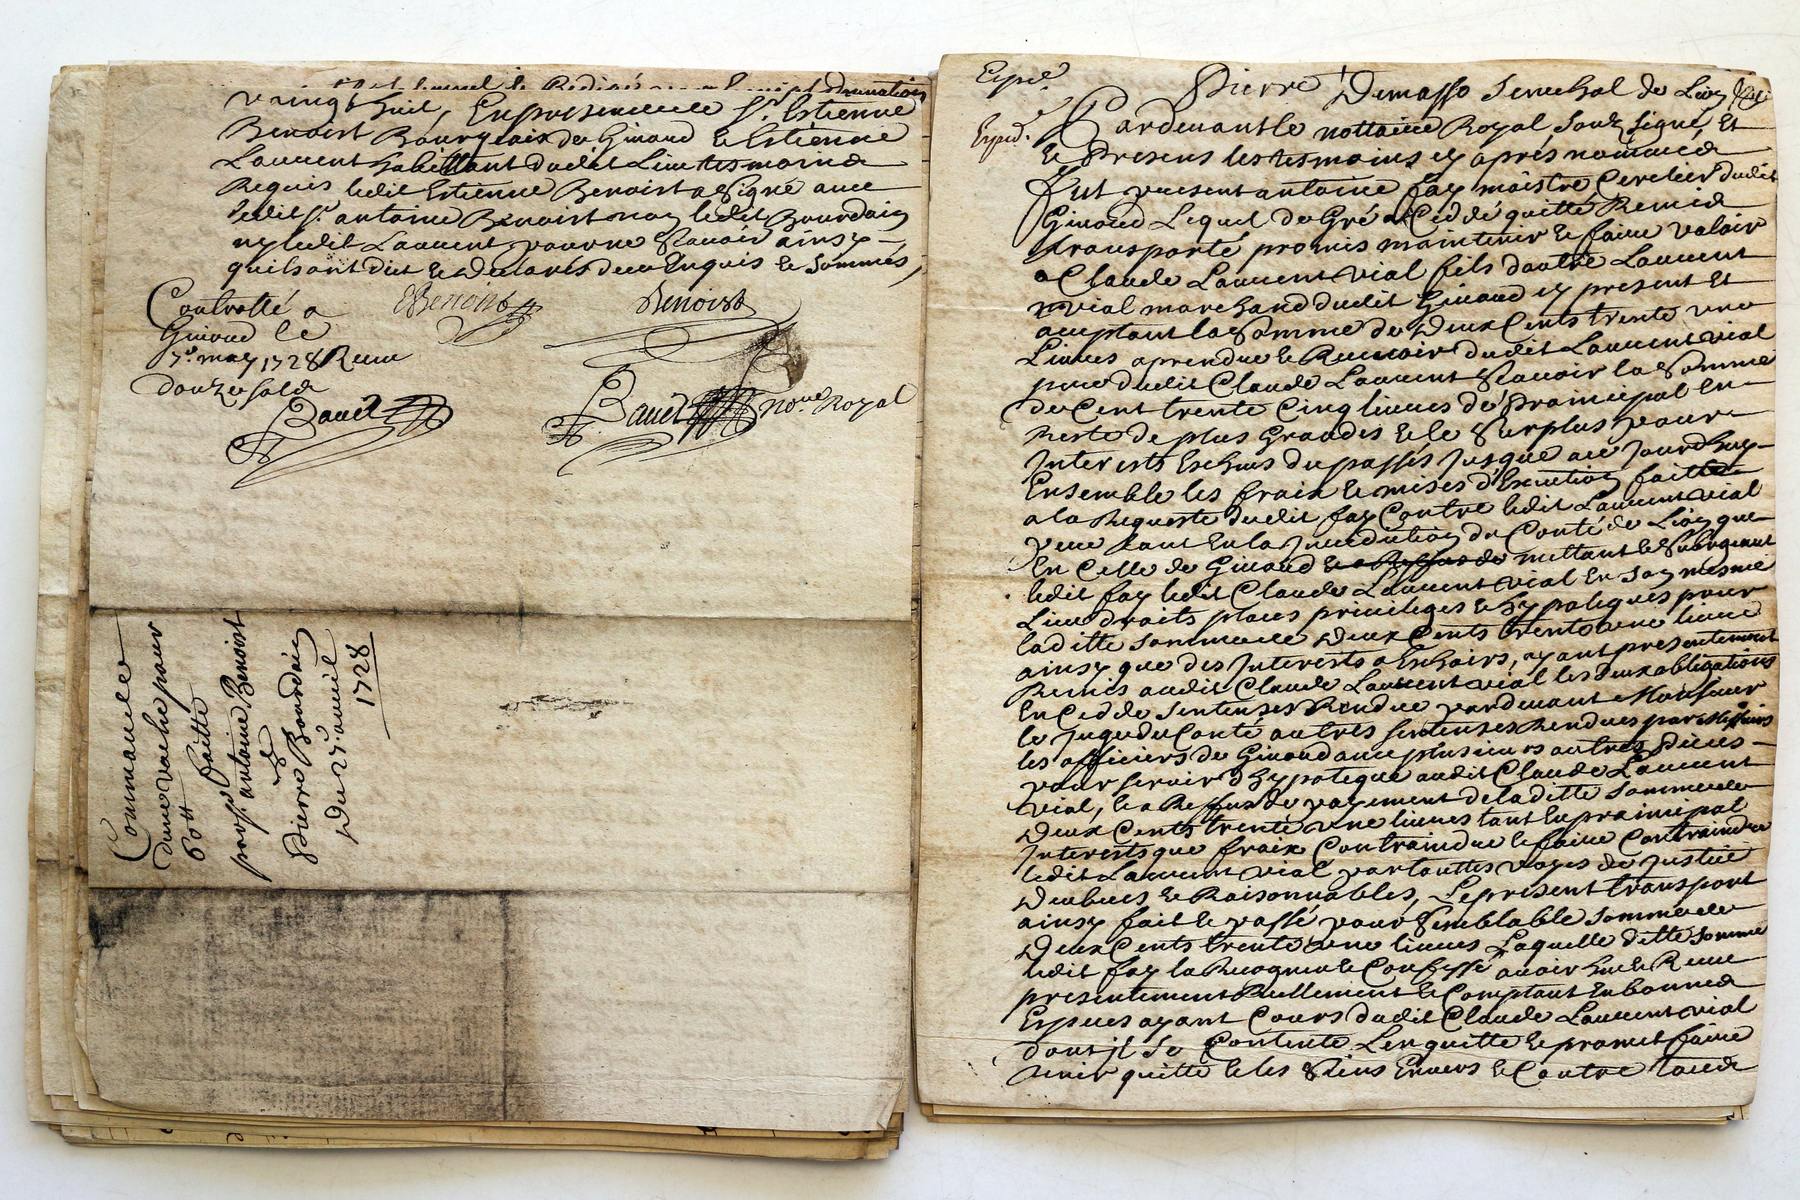 vaingt huit, En presence de Sr. Estienne
Benoist Bourgeois de Giraud & Estienne
Laurent habittant dudit Lieu tesmoins
Requis ledit Estienne Benoist a Signé avec
ledit Sr. antoine Benoist non ledit Bourdain
ny ledit Laurent pour ne Scavoir ainsy
quils ont dict & declarés deux Enquis & Sommés,
Controllé a
Giraud le
7e. may 1728 Receu
douze sols
EBenoist
Benoist
Bauet
Bauet nore. Royal
Commande
dune vache pour
60 tt faitte
par Sr antoine Benoist
a
Pierre Bourdain
Du 25e. avuril
1728
Expé.
Expéd.
Pierre Demasso Senechal de Lion
Pardevant le nottaire Royal, Soubz signé, Et
& Presens les tesmoins cy après nommés
fut present antoine fay maistre Cerclier dudit
Giraud Lequel de Gré a Ceddé quitté Remis
transporté promis maintenir & faire valoir
a Claude Laurent vial fils dautre Laurent
vial marchand dudit Giraud cy present Et
acceptant la Somme de Deux Cents trente une
Livres a prendre & Recevoir dudit Laurent vial
pere dudit Claude Laurent Scavoir la Somme
de Cent trente Cinq livres de Principal En
Reste de plus Grande & le Surplus pour
Interests Escheus du passés Jusque au Jourdhuy
Ensemble les fraix & mises d'Execution faitte
a la Requeste dudit fay Contre ledit Laurent vial
pere tant En la Juridiction du Conté de Lion que
En Celle de Giraud & a Reffus de mettant & Subrogeant
ledit fay ledit Claude Laurent vial En Son mesme
Lieu droits places privileges & hypoteques pour
laditte Somme de Deux Cents trente une livre
ainsy que des Interests a Escheoirs, ayant presentement
Remis audit Claude Laurent vial les deux obligations
En Cedde Sentenses Rendue pardevant Monsieur
le Juge du Conté autres sentenses Rendues par Messieurs
les officiers de Giraud avec plusieurs autres pieces
pour servir d'hypoteque audit Claude Laurent
vial, & a Reffus de payement de laditte Somme de
Deux Cents trente une livres tant En principal
Interests que fraix Contraindre & faire Contraindre
ledit Laurent vial par touttes voyes de Justice
Deubues & Raisonnables, Le present transport
ainsy fait & passé pour Semblable Somme de
Deux Cents trente une livres Laquelle ditte Somme
ledit fay la Recognu & Confessé avoir heu & Receu
presentement Reellement & Comptant En bonnes
Especes ayant Cours dudit Claude Laurent vial
dont il Se Contente Len quitte & promet faire
tenir quitte & les Siens Envers & Contre tous